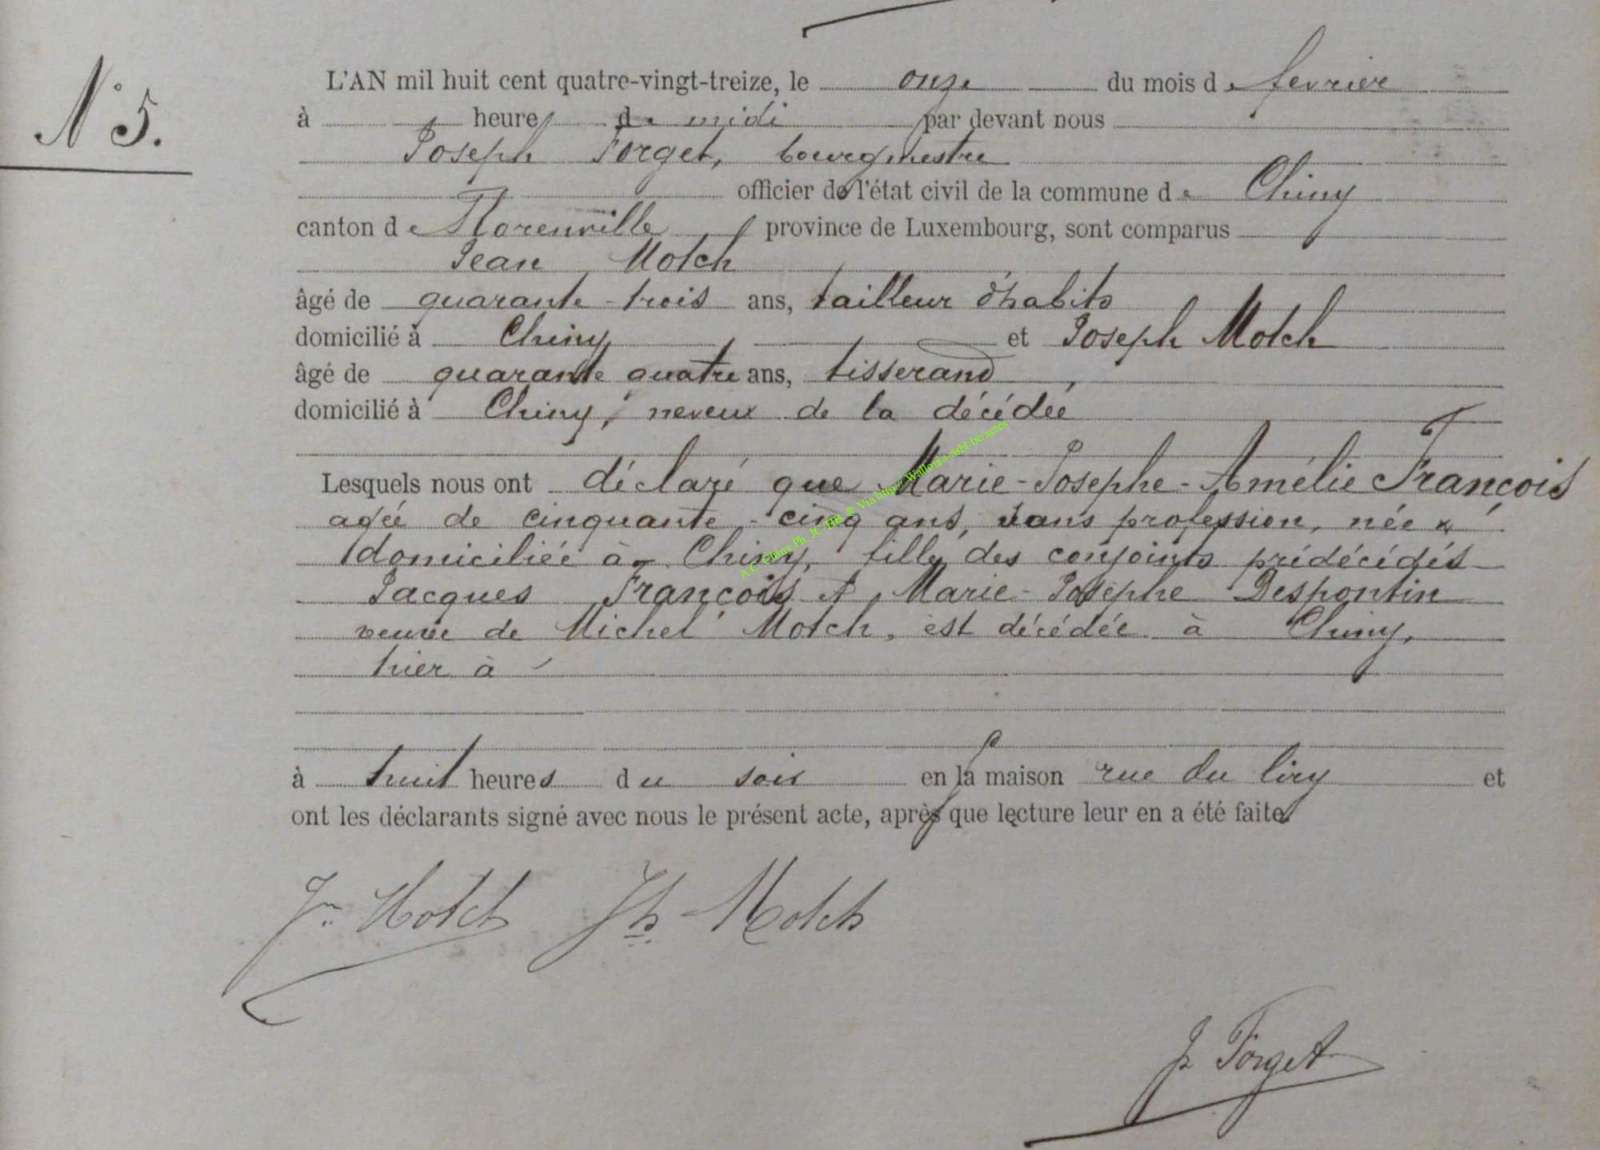 N° 5.
L'AN mil huit cent quatre-vingt-treize, le onze du mois de fevrier
à heure de midi par devant nous
Joseph Forget, bourgmestre
officier de l'état civil de la commune de Chiny
canton de Florenville province de Luxembourg, sont comparus
Jean Motch
âgé de quarante-trois ans, tailleur d'habits
domicilié à Chiny et Joseph Motch
âgé de quarante quatre ans, tisserand,
domicilié à Chiny, neveux de la décédée
Lesquels nous ont déclaré que Marie-Josephe-Amélie François
agée de cinquante-cinq ans, sans profession, née &
domiciliée à Chiny, fille des conjoints prédécédés
Jacques François et Marie-Josephe Despontin
veuve de Michel Motch, est décédée à Chiny,
hier à
à huit heures du soir en sa maison rue du liry et
ont les déclarants signé avec nous le présent acte, après que lecture leur en a été faite.
Jn Motch Jh Motch
J. Forget